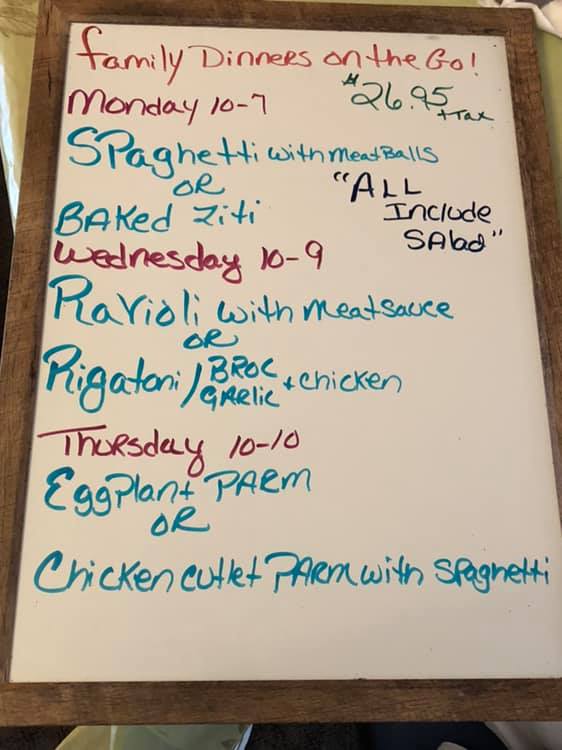 Family Dinners on the Go!
Monday 10-7
$26.95
+Tax
Spaghetti with MeatBalls
OR
BAKed Ziti
"ALL
Include
SAlad"
Wednesday 10-9
Ravioli with Meatsauce
OR
Rigatoni / BROC GARlic + chicken
Thursday 10-10
EggPlant PARM
OR
Chicken cutlet PARM with SPaghetti